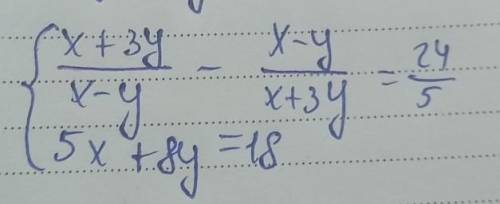 { (x+3y)/(x-y) - (x-y)/(x+3y) = 24/5
5x + 8y = 18